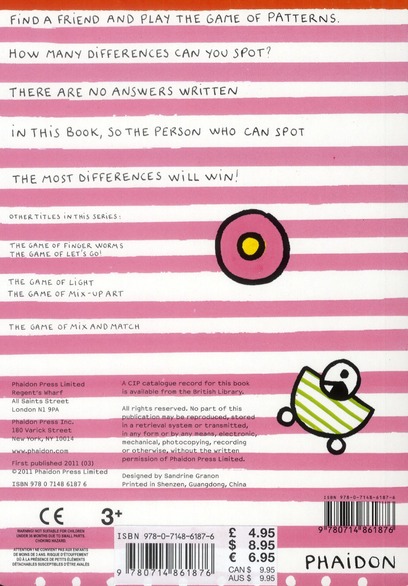 FIND A FRIEND AND PLAY THE GAME OF PATTERNS.
HOW MANY DIFFERENCES CAN YOU SPOT?
THERE ARE NO ANSWERS WRITTEN
IN THIS BOOK, SO THE PERSON WHO CAN SPOT
THE MOST DIFFERENCES WILL WIN!
OTHER TITLES IN THIS SERIES:
THE GAME OF FINGER WORMS
THE GAME OF LET'S GO!
THE GAME OF LIGHT
THE GAME OF MIX-UP ART
THE GAME OF MIX AND MATCH
Phaidon Press Limited
Regent's Wharf
All Saints Street
London N1 9PA
Phaidon Press Inc.
180 Varick Street
New York, NY 10014
www.phaidon.com
First published 2011 (03)
© 2011 Phaidon Press Limited
ISBN 978 0 7148 6187 6
A CIP catalogue record for this book
is available from the British Library.
All rights reserved. No part of this
publication may be reproduced, stored
in a retrieval system or transmitted,
in any form or by any means, electronic,
mechanical, photocopying, recording
or otherwise, without the written
permission of Phaidon Press Limited.
Designed by Sandrine Granon
Printed in Shenzen, Guangdong, China
CE 3+
WARNING! NOT SUITABLE FOR CHILDREN
UNDER 36 MONTHS DUE TO SMALL PARTS.
CHOKING HAZARD
ATTENTION! NE CONVIENT PAS AUX ENFANTS
DE MOINS DE 3 ANS. RISQUE D'ÉTOUFFEMENT
DÛ À LA PRÉSENCE DE PETITS ÉLÉMENTS
DÉTACHABLES SUSCEPTIBLES D'ÊTRE AVALÉS
ISBN 978-0-7148-6187-6
9 780714 861876
£ 4.95
$ 8.95
€ 6.95
CAN $ 9.95
AUS $ 9.95
ISBN 978-0-7148-6187-6
9 780714 861876
PHAIDON